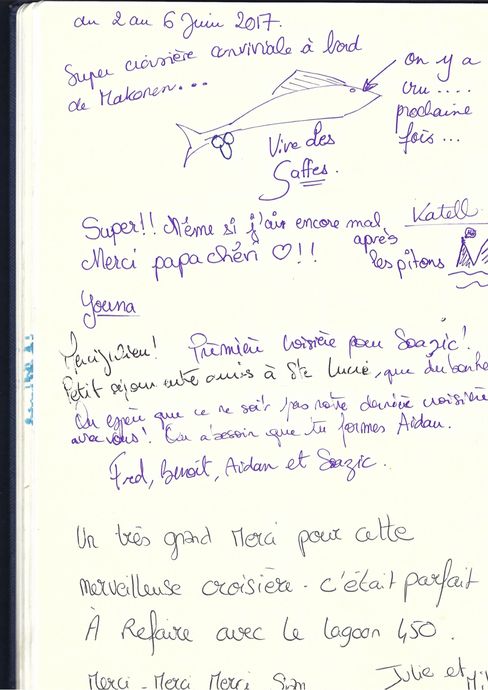 du 2 au 6 Juin 2017.
Super croisière conviviale à bord
de Makonen...
on y a
cru ....
prochaine
fois ...
Vive des
Gaffes.
Katell
Super!! Même si j'ai encore mal
après
les pitons
Merci papa chéri ♡!!
Youna
Première croisière pour Soazic!
Petit séjour entre amis à Ste Lucie, que du bonhe
On espère que ce ne soit pas notre dernière croisière
avec vous! On a besoin que tu formes Aidan.
Fred, Benoit, Aidan et Soazic.
Un très grand Merci pour cette
merveilleuse croisière. c'était parfait
À Refaire avec le lagoon 450.
Merci - Merci Merci
Julie et